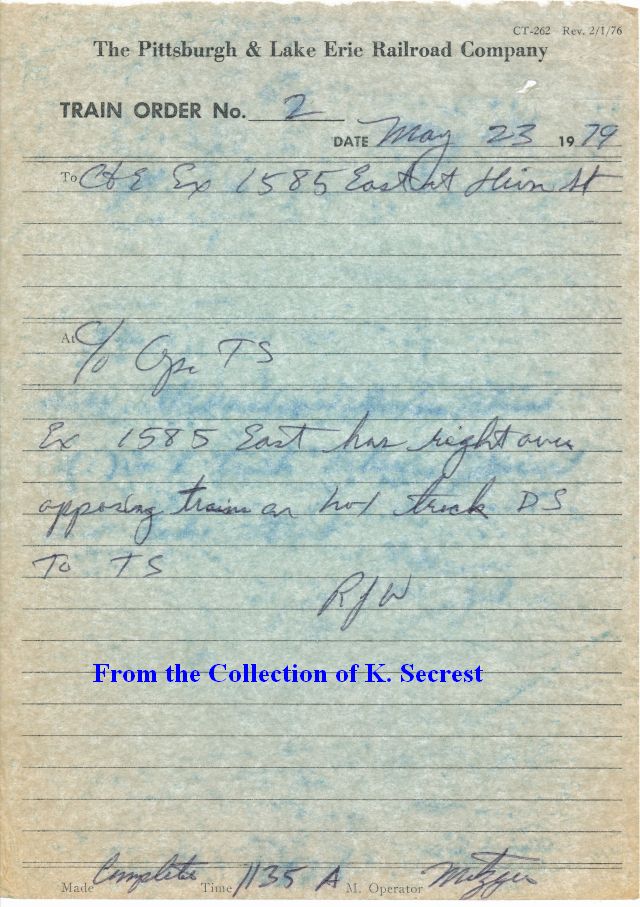 CT-262 Rev. 2/1/76
The Pittsburgh & Lake Erie Railroad Company
TRAIN ORDER No. 2
DATE May 23 1979
To C&E Ex 1585 East at St
At C/o Opr TS
Ex 1585 East has right over
opposing train on No 1 track DS
To TS
RJW
From the Collection of K. Secrest
Made Complete Time 1135 A M. Operator Metzger